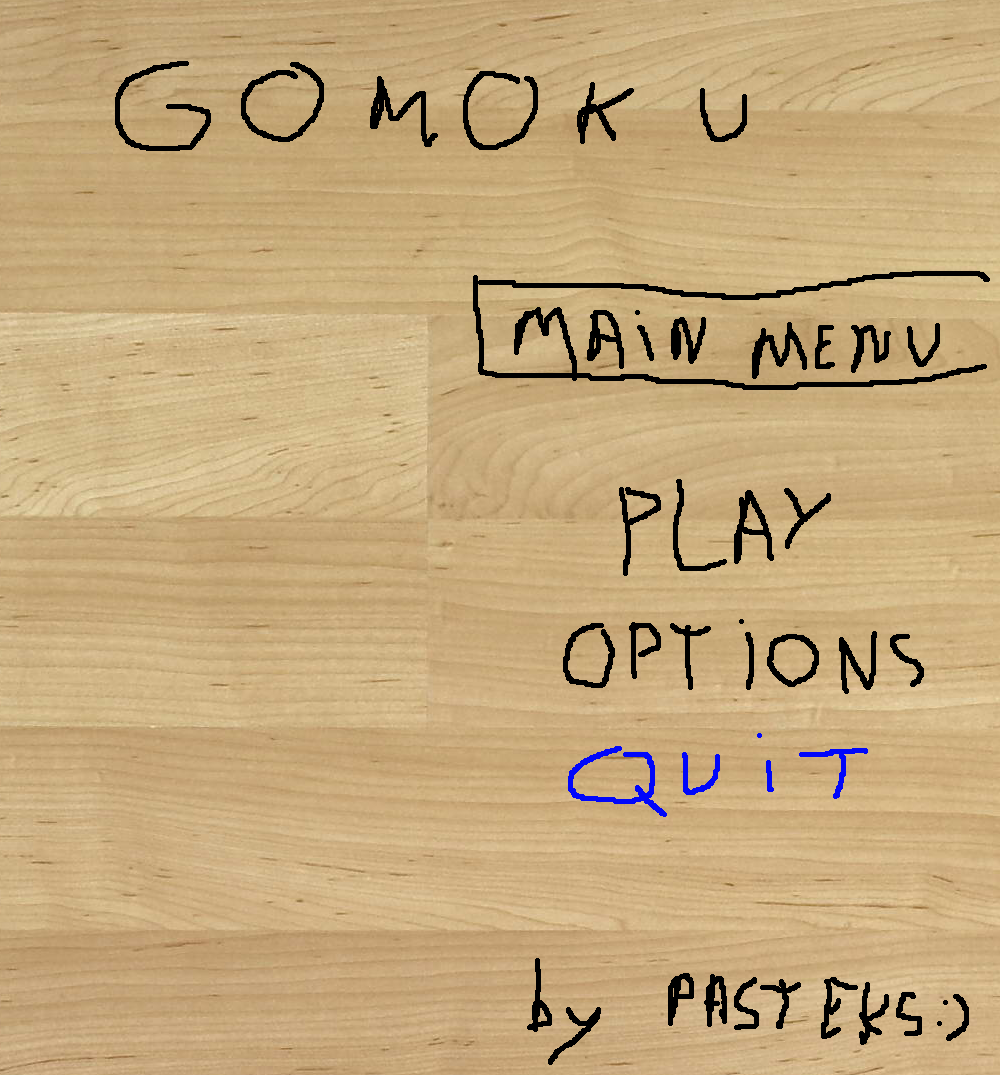 GOMOKU
MAiN MENU
PLAY
OPTiONS
QUiT
by PASTEKS:)